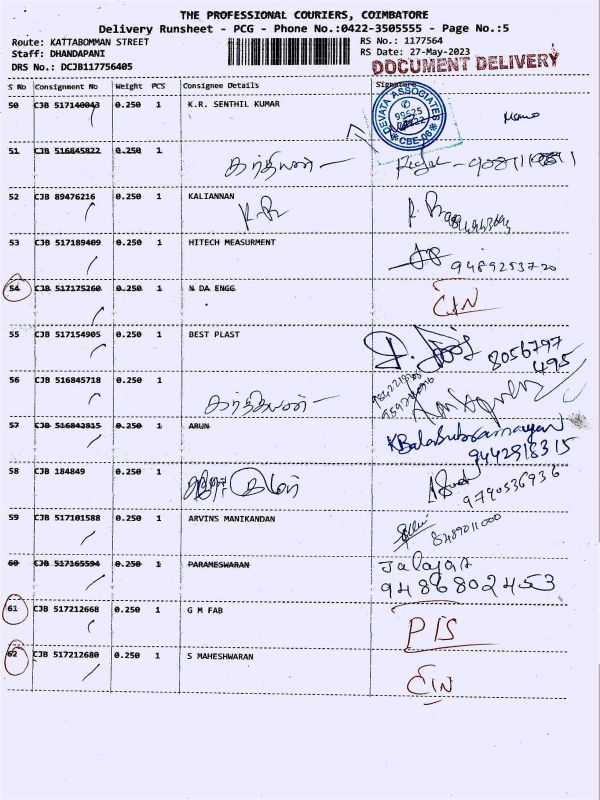 THE PROFESSIONAL COURIERS, COIMBATORE
Delivery Runsheet - PCG - Phone No.:0422-3505555 - Page No.:5
Route: KATTABOMMAN STREET RS No.: 1177564
Staff: DHANDAPANI RS Date: 27-May-2023
DRS No.: DCJB117756405 DOCUMENT DELIVERY
S No Consignment No Weight PCS Consignee Details Signature
50 CJB 517140043 0.250 1 K.R. SENTHIL KUMAR
DEVATA ASSOCIATES CBE-06
51 CJB 516845822 0.250 1
கார்த்திகேயன்
52 CJB 89476216 0.250 1 KALIANNAN
53 CJB 517189409 0.250 1 HITECH MEASURMENT
9489253720
54 CJB 517175260 0.250 1 N DA ENGG
CIN
55 CJB 517154905 0.250 1 BEST PLAST
8056797
495
56 CJB 516845718 0.250 1
கார்த்திகேயன்
57 CJB 516843815 0.250 1 ARUN
KBalaSubramaniyan
9442918315
58 CJB 184849 0.250 1
9790536936
59 CJB 517101588 0.250 1 ARVINS MANIKANDAN
8489011000
60 CJB 517165594 0.250 1 PARAMESWARAN
Jalajar
9486802453
61 CJB 517212668 0.250 1 G M FAB
PIS
62 CJB 517212680 0.250 1 S MAHESHWARAN
CIN